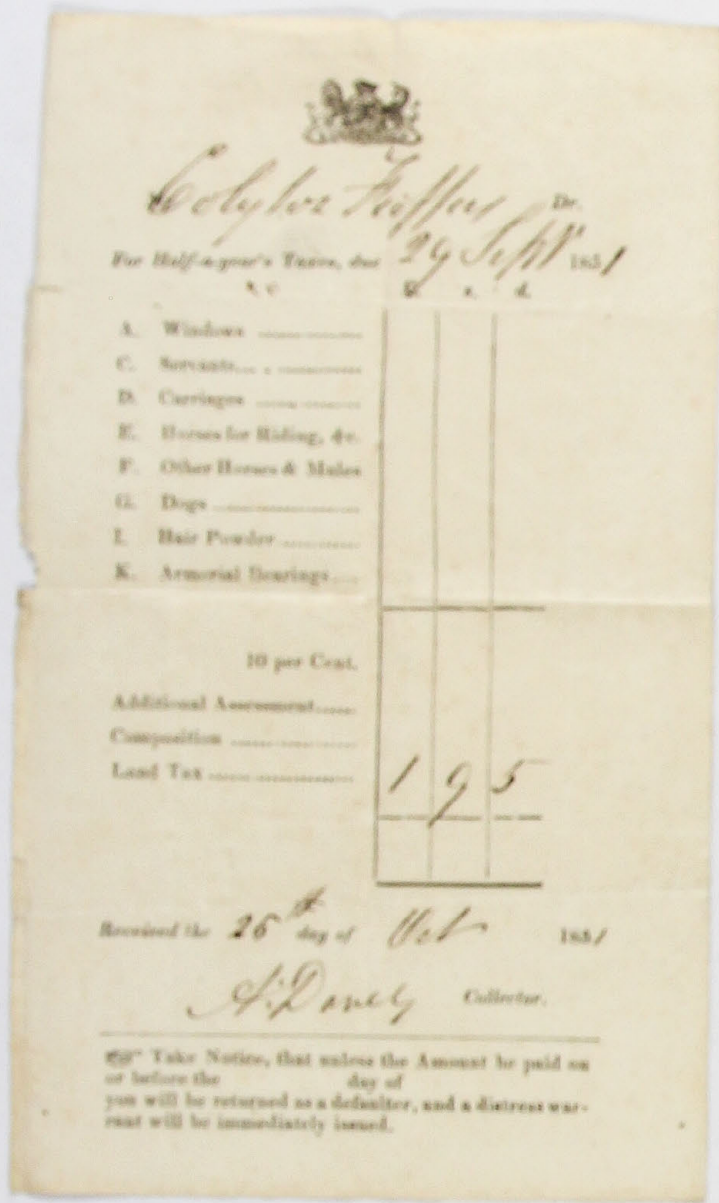 Colyton Feoffees Dr.
For Half-a-year's Taxes, due 29 Sept 1851
£. s. d.
A. Windows
C. Servants
D. Carriages
E. Horses for Riding, &c.
F. Other Horses & Mules
G. Dogs
I. Hair Powder
K. Armorial Bearings
10 per Cent.
Additional Assessment
Composition
Land Tax 1 9 5
Received the 25th day of Oct 1851
Collector.
Take Notice, that unless the Amount be paid on
or before the day of
you will be returned as a defaulter, and a distress war-
rant will be immediately issued.